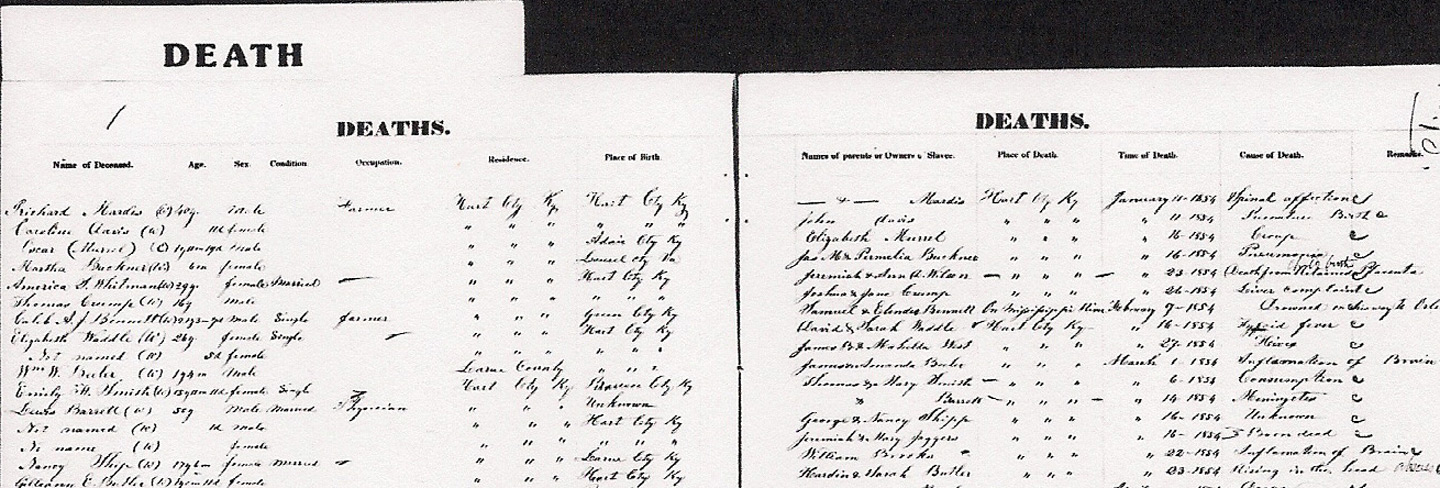 DEATH
1
DEATHS. DEATHS.
Name of Deceased. Age. Sex. Condition Occupation. Residence. Place of Birth Names of parents or Owners of Slaves. Place of Death. Time of Death. Cause of Death. Remarks.
Richard Mardis male Farmer Hart Cty Ky Hart Cty Ky Mardis Hart Cty Ky January 11-1854 Spinal affection
Caroline Davis (W) 11d female " " " " " " John Davis " " " " 11 1854 Premature Birth
Oscar (Murrel) male " " " Adair Cty Ky Elizabeth Murrel " " " " 16-1854 Croup
Martha Buckner (W) 6m female " " " Laurel cty Jas M & Permelia Buckner " " " " 16-1854 Pneumonia
America Whitman (W) 29y female Married — " " " Hart Cty Ky Jeremiah & Ann Wilson — " " " — " 23-1854 Death from Retained Placenta
Thomas Crump (W) 16y Male " " " " " " Joshua & Jane Crump " " " " 26-1854 Liver complaint
Caleb A. J. Bennett (W) male Single farmer " " " Green Cty Ky Samuel & Bennett On Mississippi February 7-1854 Drowned
Elizabeth Waddle (W) 26y female Single — " " " Hart Cty Ky David & Sarah Waddle Hart Cty Ky " 16-1854 fever
Not named (W) 5d female " " " " " " James B & Matilda West " " " " 27-1854 Hives
Wm W. Beeler (W) male Larue County " " " James & Amanda Beeler " " " March 1-1854 Inflamation of Brain
Emily Smith female Single Hart Cty Ky Cty Ky Thomas & Mary Smith — " " " " 6-1854 Consumption
Lewis Barrett (W) 55y Male Married Physician " " " Unknown Barrett — " " " — " 14-1854 Meningetes
Not named (W) 1d male " " " Hart Cty Ky George & Nancy Shipp " " " " 16-1854 Unknown
No name (W) female " " " " " " Jeremiah & Mary Jaggers " " " " 16-1854 Born dead
Nancy Ship (W) female Married — " " " Larue Cty Ky William Brooks " " " " 22-1854 Inflamation of Brain
E. Butler female " " " Hart Cty Ky Hardin & Sarah Butler " " " " 23-1854 Rising in the head